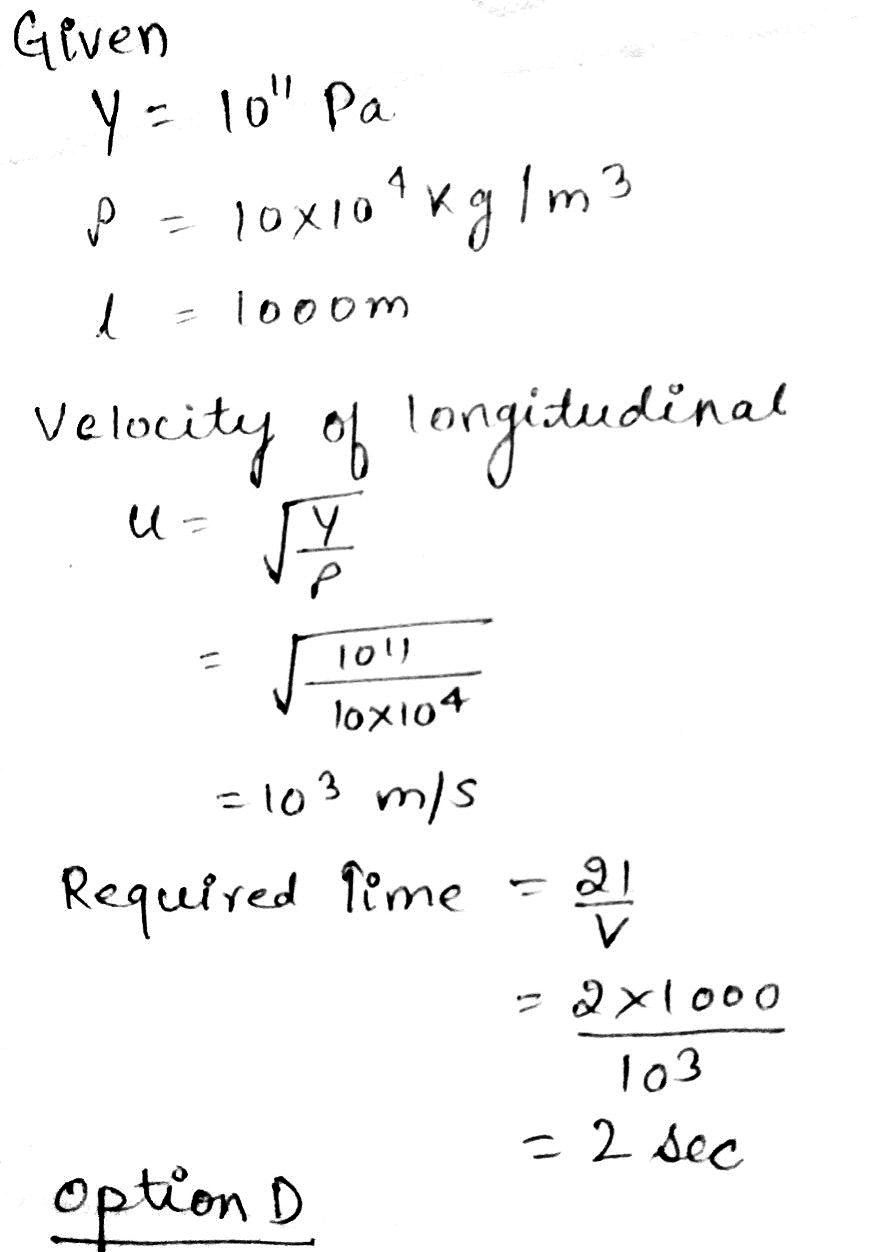 Given
Y = 10¹¹ Pa
ρ = 10×10⁴ kg/m³
l = 1000m
Velocity of longitudinal
u = √(Y/ρ)
= √(10¹¹/10×10⁴)
= 10³ m/s
Required Time = 2l/V
= 2×1000/10³
= 2 sec
Option D